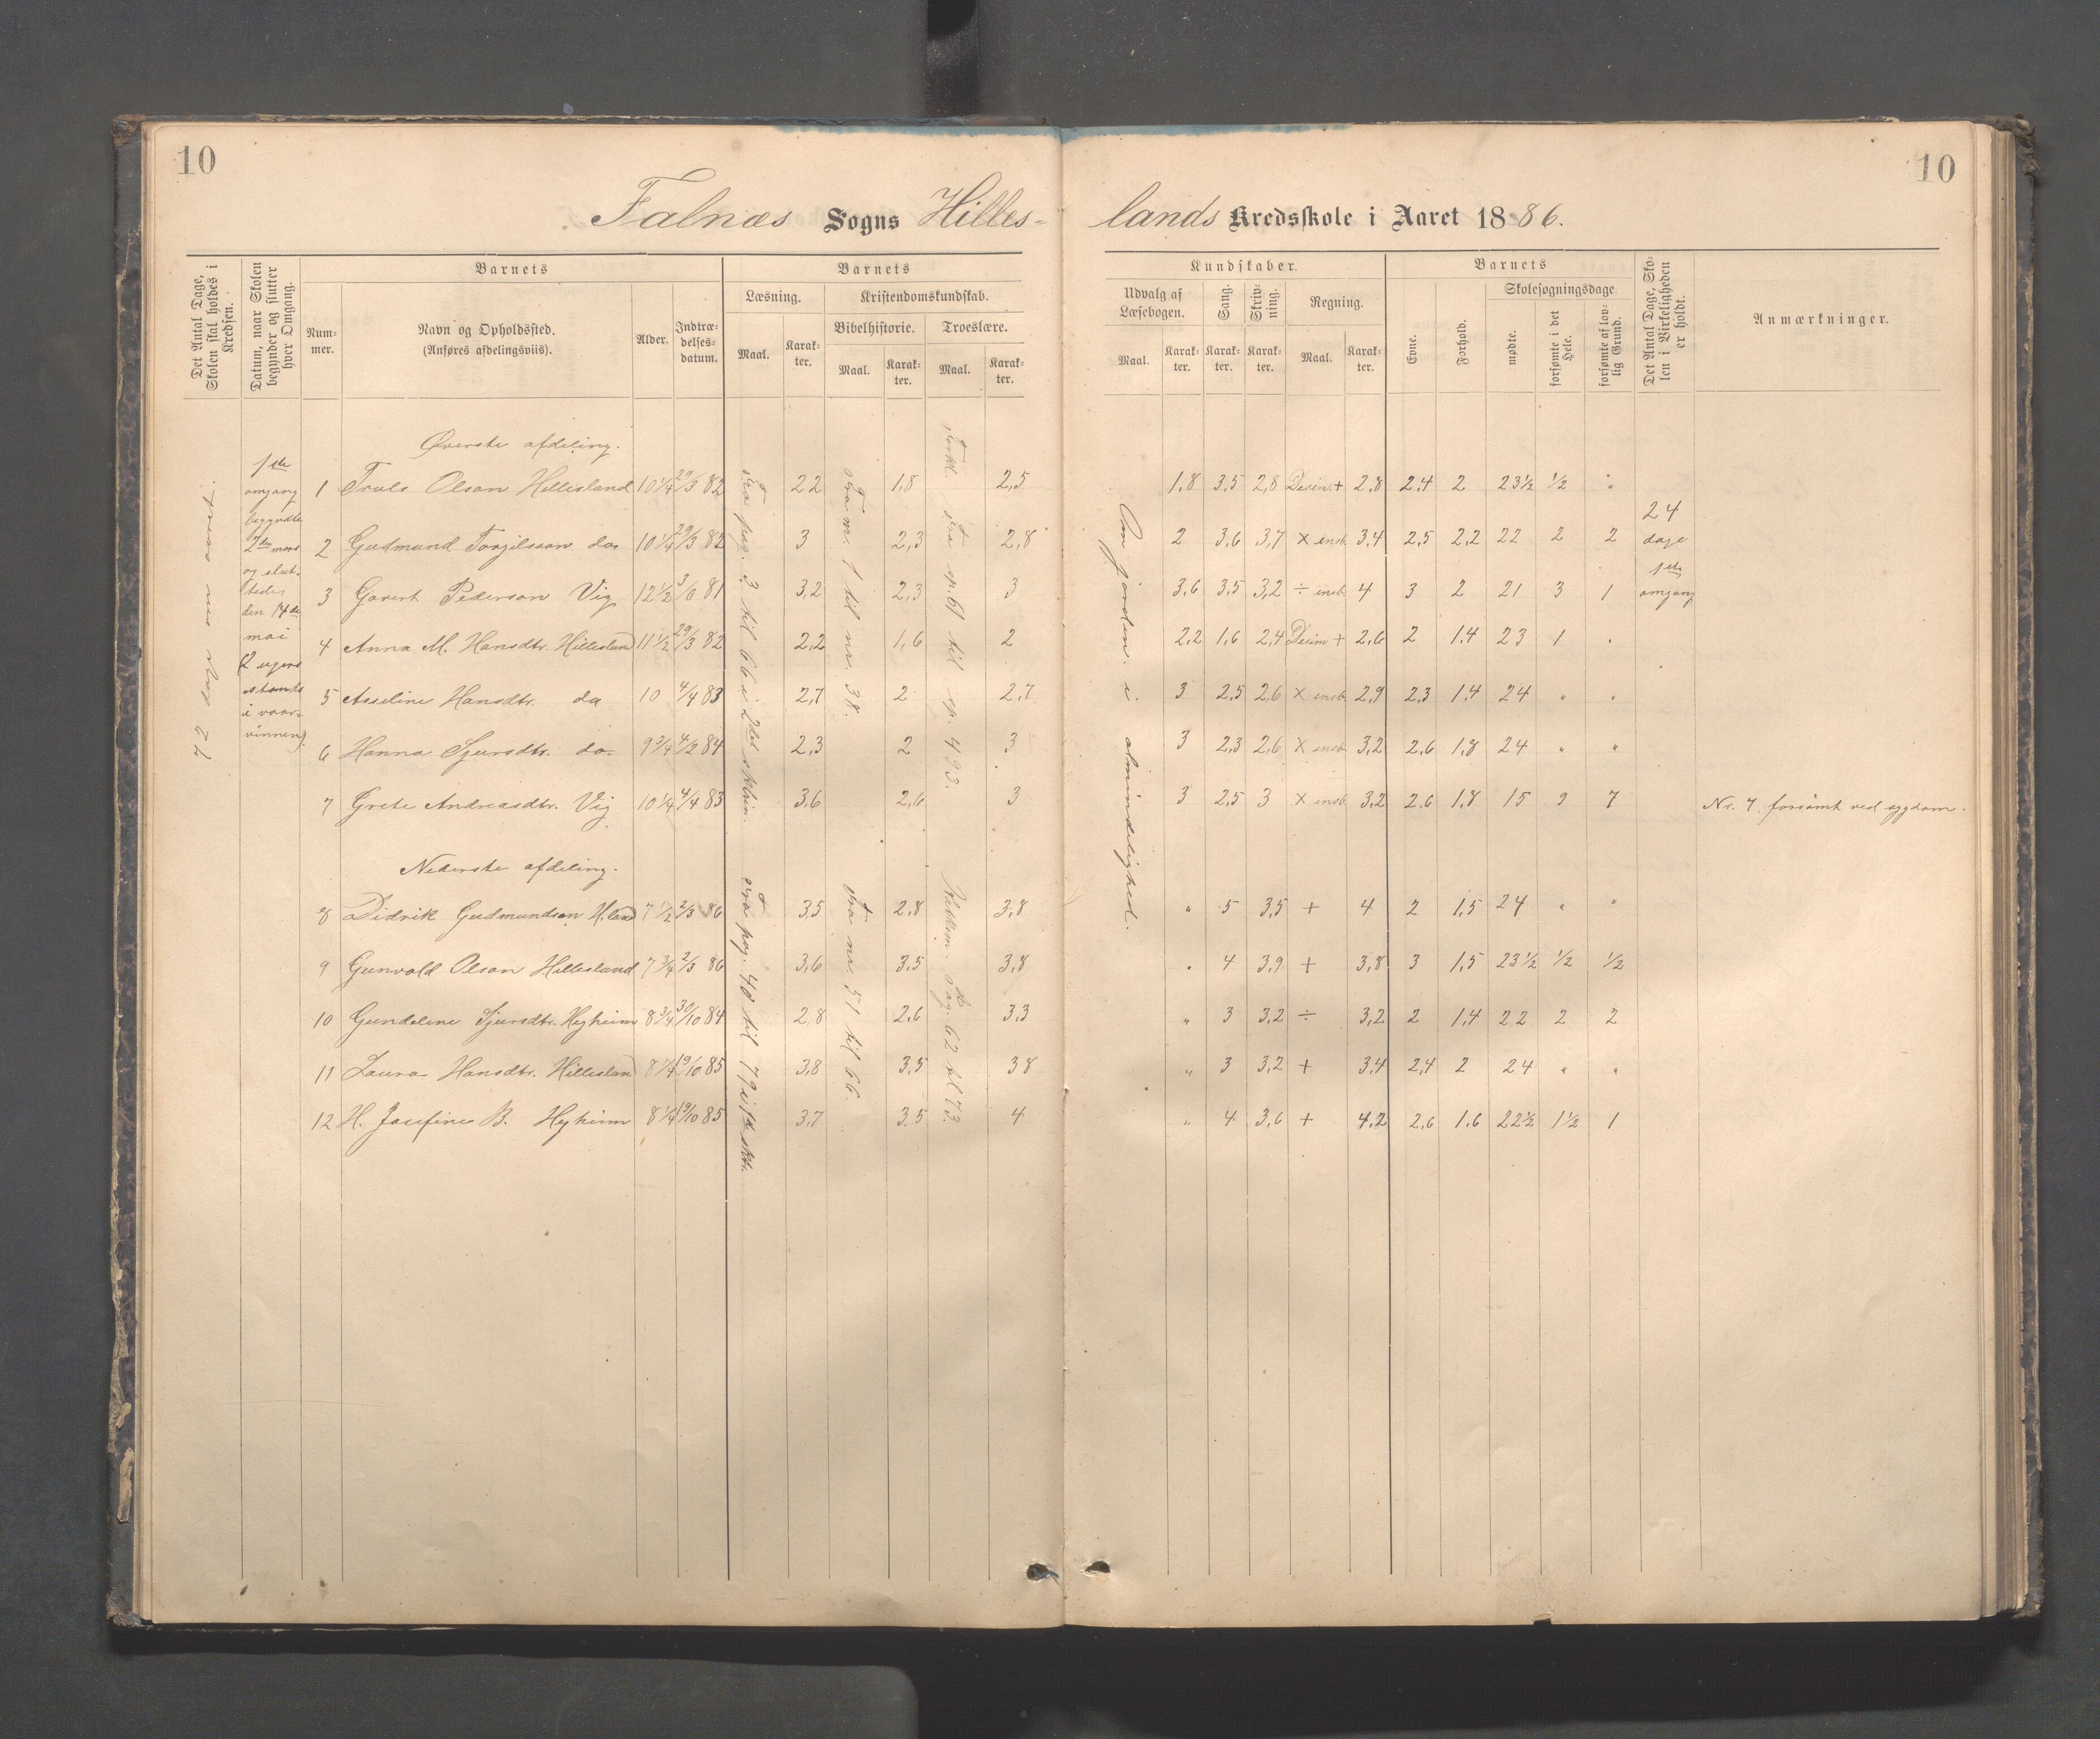 10
10
Falnæs Sogns Hilles-
lands Kredsskole i Aaret 1886.
Det Antal Dage, Skolen skal holdes i Kredsen.
Datum, naar Skolen begynder og slutter hver Omgang.
Barnets
Nummer.
Navn og Opholdssted.
(Anføres afdelingsviis).
Alder.
Indtrædelsesdatum.
Barnets
Læsning.
Maal.
Karakter.
Kristendomskundskab.
Bibelhistorie.
Maal.
Karakter.
Troeslære.
Maal.
Karakter.
Kundskaber.
Udvalg af Læsebogen.
Maal.
Karakter.
Sang.
Karakter.
Skrivning.
Karakter.
Regning.
Maal.
Karakter.
Barnets
Evne.
Forhold.
Skolesøgningsdage
mødte.
forsømte i det Hele.
forsømte af lovlig Grund.
Det Antal Dage, Skolen i Virkeligheden er holdt.
Anmærkninger.
1ste
omgang
begyndte
2den mars
og slut-
tedes
den 14de
mai
(2 ugers
stands
i vaar-
vinnen)
Fra pag. 3 til 66 i 2det skltrin.
Fra nr. 1 til nr. 38.
Forkl. fra sp. 61 til sp. 493.
Om jorden i almindelighed.
24
dage
1ste
omgang
Øverste afdeling.
1 Truls Olson Hillesland 10 1/4 29/3 82 2,2 1,8 2,5 1,8 3,5 2,8 Decim + 2,8 2,4 2 23 1/2 1/2 "
2 Gudmund Torgilsson do 10 1/4 29/3 82 3 2,3 2,8 2 3,6 3,7 × ensb. 3,4 2,5 2,2 22 2 2
3 Govert Pederson Vig 12 1/2 81 3,2 2,3 3 3,6 3,5 3,2 ÷ ensb. 4 3 2 21 3 1
4 Anna M. Hansdtr. Hillesland 11 1/2 29/3 82 2,2 1,6 2 2,2 1,6 2,4 Decim + 2,6 2 1,4 23 1 "
5 Asseline Hansdtr. do 10 4/4 83 2,7 2 2,7 3 2,5 2,6 × ensb. 2,9 2,3 1,4 24 " "
6 Hanna Sjursdtr. do 9 3/4 4/2 84 2,3 2 3 3 2,3 2,6 × ensb. 3,2 2,6 1,8 24 " "
7 Grete Andreasdtr. Vig 10 1/4 4/4 83 3,6 2,6 3 3 2,5 3 × ensb. 3,2 2,6 1,8 15 9 7 Nr. 7. forsømt ved sygdom.
Nederste afdeling.
Fra pag. 40 til 79 i 1ste skltr.
Fra nr. 51 til 66.
Pag. 62 til 73.
8 Didrik Gudmundson H.land 7 1/2 2/3 86 3,5 2,8 3,8 " 5 3,5 + 4 2 1,5 24 " "
9 Gunvald Olson Hillesland 7 3/4 2/3 86 3,6 3,5 3,8 " 4 3,9 + 3,8 3 1,5 23 1/2 1/2 1/2
10 Gundeline Sjursdtr. Høyheim 8 3/4 30/10 84 2,8 2,6 3,3 " 3 3,2 ÷ 3,2 2 1,4 22 2 2
11 Laura Hansdtr. Hillesland 8 1/4 19/10 85 3,8 3,5 3,8 " 3 3,2 + 3,4 2,4 2 24 " "
12 H. Josefine B. Høyheim 8 1/4 19/10 85 3,7 3,5 4 " 4 3,6 + 4,2 2,6 1,6 22 1/2 1 1/2 1